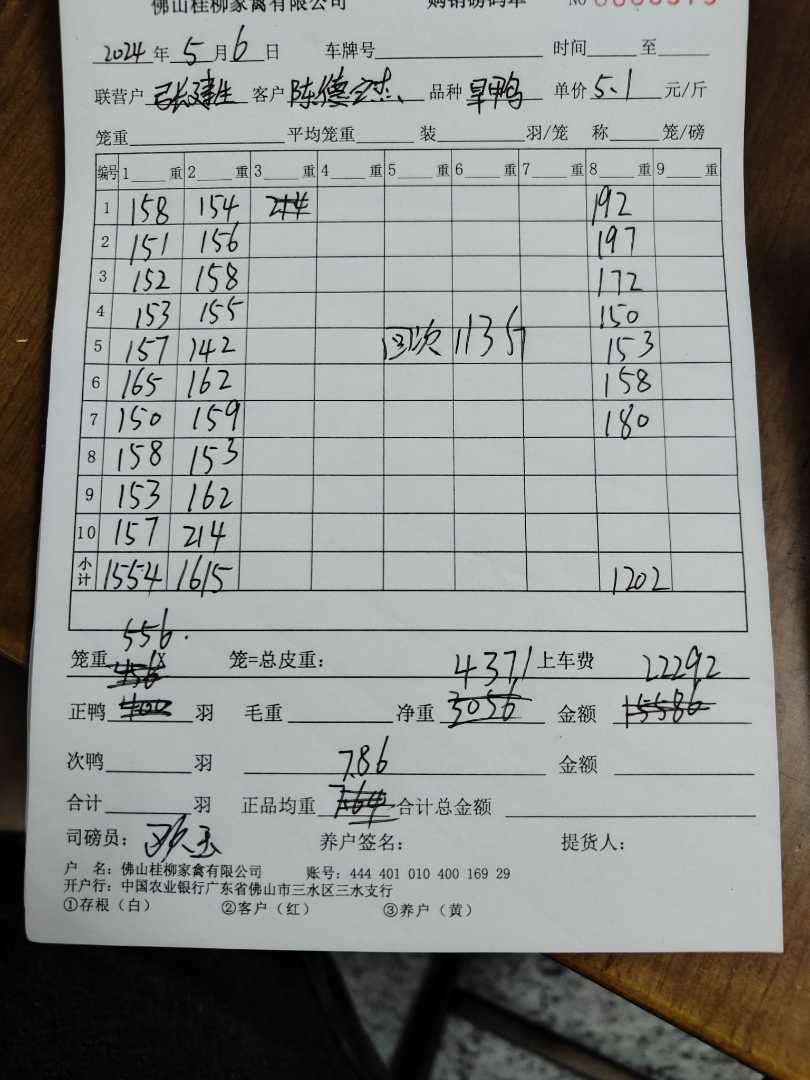 佛山桂柳家禽有限公司 购销磅码单 NO
2024年5月6日 车牌号 时间 至
联营户 张建生 客户 陈德 品种 旱鸭 单价 5.1 元/斤
笼重 平均笼重 装 羽/笼 称 笼/磅
编号 1 重 2 重 3 重 4 重 5 重 6 重 7 重 8 重 9 重
1 158 154 214 192
2 151 156 197
3 152 158 172
4 153 155 150
5 157 142 113 153
6 165 162 158
7 150 159 180
8 158 153
9 153 162
10 157 214
小计 1554 1615 1202
556.
笼重 456 笼=总皮重: 4371 上车费 22292
正鸭 400 羽 毛重 净重 3056 金额 15586
次鸭 羽 7.86 金额
合计 羽 正品均重 7.64 合计总金额
司磅员: 养户签名: 提货人:
户 名: 佛山桂柳家禽有限公司 账号: 444 401 010 400 169 29
开户行: 中国农业银行广东省佛山市三水区三水支行
①存根(白) ②客户(红) ③养户(黄)